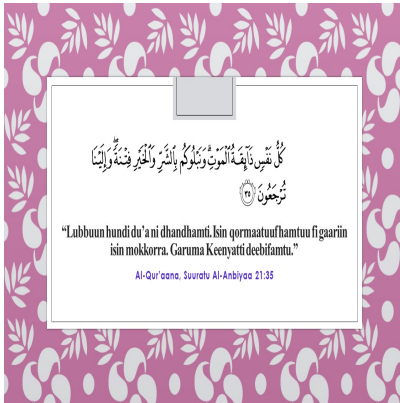 كُلُّ نَفْسٍ ذَآئِقَةُ ٱلْمَوْتِ ۗ وَنَبْلُوكُم بِٱلشَّرِّ وَٱلْخَيْرِ فِتْنَةً ۖ وَإِلَيْنَا
تُرْجَعُونَ ﴿٣٥﴾
“Lubbuun hundi du’a ni dhandhamti. Isin qormaatuuf hamtuu fi gaariin
isin mokkorra. Garuma Keenyatti deebifamtu.”
Al-Qur'aana, Suuratu Al-Anbiyaa 21:35